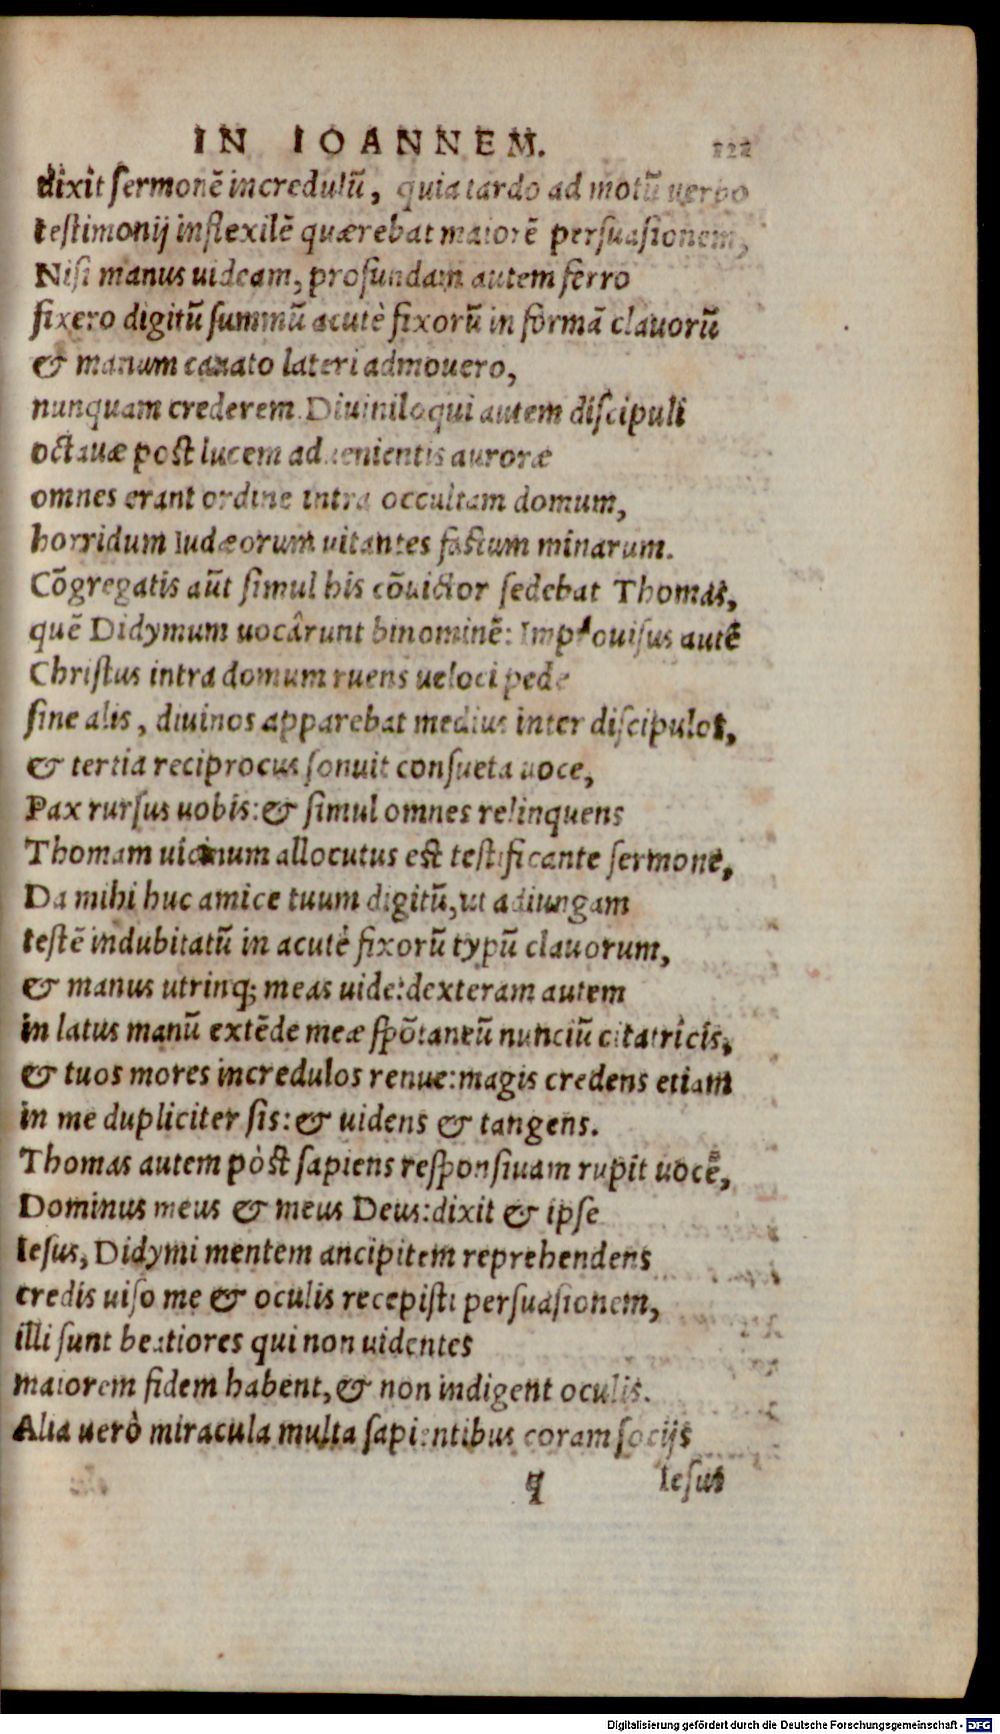 IN IOANNEM. 121
dixit sermonē incredulū, quia tardo ad motū uerbo
testimonij inflexilē quærebat maiorē persuasionem,
Nisi manus uideam, profundam autem ferro
fixero digitū summū acutè fixorū in formā clauorū
& manum cauato lateri admouero,
nunquam crederem. Diuiniloqui autem discipuli
octauæ post lucem aduenientis auroræ
omnes erant ordine intra occultam domum,
horridum Iudæorum uitantes fastum minarum.
Cōgregatis aūt simul his cōuictor sedebat Thomas,
quē Didymum uocârunt binominē: Improuisus autē
Christus intra domum ruens ueloci pede
sine alis, diuinos apparebat medius inter discipulos,
& tertia reciprocus sonuit consueta uoce,
Pax rursus uobis: & simul omnes relinquens
Thomam uicinum allocutus est testificante sermone,
Da mihi huc amice tuum digitū, ut adiungam
testē indubitatū in acutè fixorū typū clauorum,
& manus utrinq; meas uide: dexteram autem
in latus manū extēde meæ spōtaneū nunciū citatricis,
& tuos mores incredulos renue: magis credens etiam
in me dupliciter sis: & uidens & tangens.
Thomas autem pòst sapiens responsiuam rupit uocē,
Dominus meus & meus Deus: dixit & ipse
Iesus, Didymi mentem ancipitem reprehendens
credis uiso me & oculis recepisti persuasionem,
illi sunt beatiores qui non uidentes
maiorem fidem habent, & non indigent oculis.
Alia uerò miracula multa sapientibus coram socijs
q Iesus
Digitalisierung gefördert durch die Deutsche Forschungsgemeinschaft - DFG